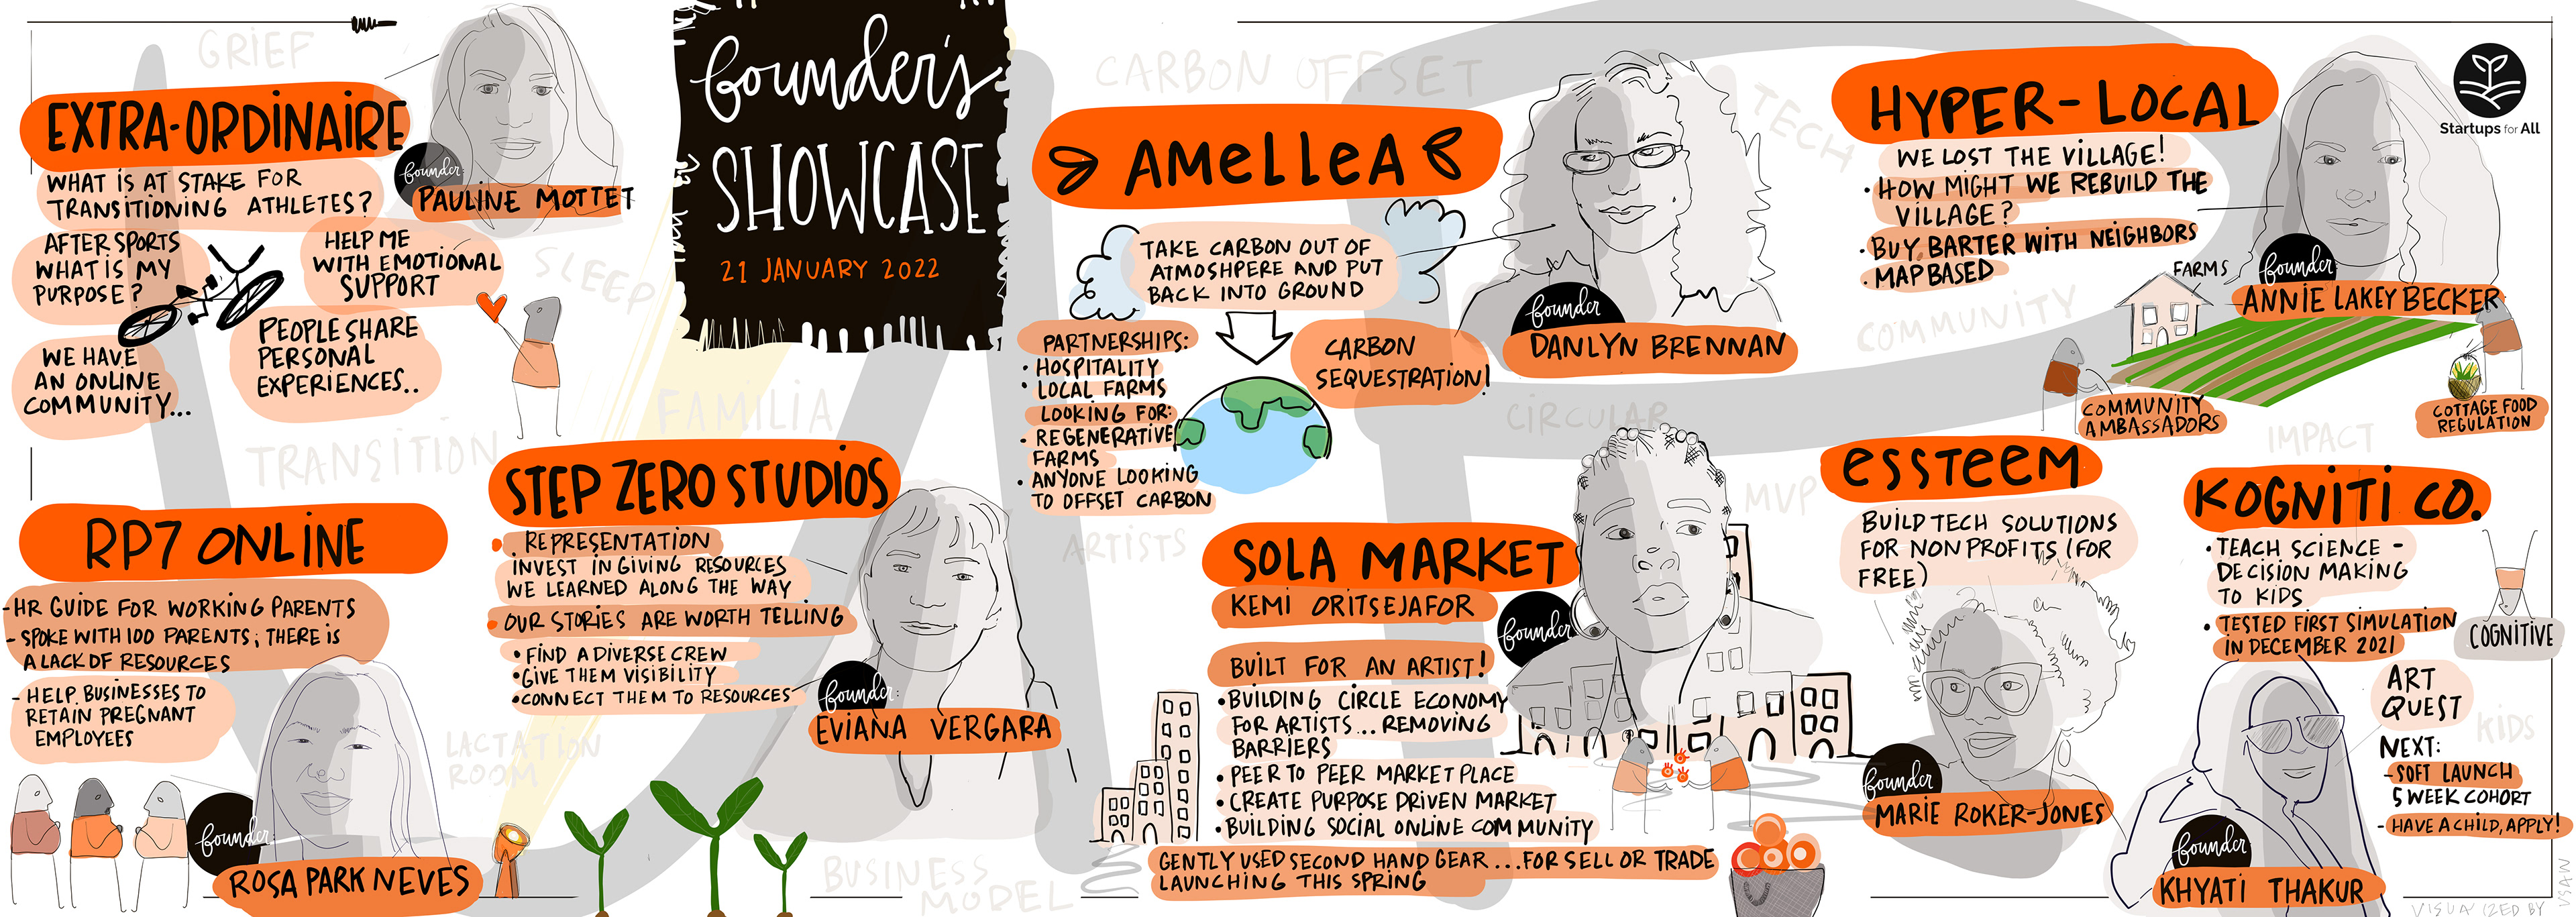 founder's
SHOWCASE
21 JANUARY 2022
GRIEF
EXTRA-ORDINAIRE
WHAT IS AT STAKE FOR
TRANSITIONING ATHLETES?
AFTER SPORTS
WHAT IS MY
PURPOSE?
HELP ME
WITH EMOTIONAL
SUPPORT
WE HAVE
AN ONLINE
COMMUNITY...
PEOPLE SHARE
PERSONAL
EXPERIENCES..
founder:
PAULINE MOTTET
SLEEP
TRANSITION
FAMILIA
RP7 ONLINE
-HR GUIDE FOR WORKING PARENTS
- SPOKE WITH 100 PARENTS; THERE IS
A LACK OF RESOURCES
- HELP BUSINESSES TO
RETAIN PREGNANT
EMPLOYEES
founder:
ROSA PARK NEVES
LACTATION
ROOM
STEP ZERO STUDIOS
• REPRESENTATION
INVEST IN GIVING RESOURCES
WE LEARNED ALONG THE WAY
• OUR STORIES ARE WORTH TELLING
• FIND A DIVERSE CREW
• GIVE THEM VISIBILITY
• CONNECT THEM TO RESOURCES
founder:
EVIANA VERGARA
BUSINESS
MODEL
CARBON OFFSET
AMELLEA
TAKE CARBON OUT OF
ATMOSHPERE AND PUT
BACK INTO GROUND
PARTNERSHIPS:
• HOSPITALITY
• LOCAL FARMS
LOOKING FOR:
- REGENERATIVE
FARMS
• ANYONE LOOKING
TO OFFSET CARBON
CARBON
SEQUESTRATION!
founder
DANLYN BRENNAN
TECH
ARTISTS
CIRCULAR
SOLA MARKET
KEMI ORITSEJAFOR
founder
BUILT FOR AN ARTIST!
• BUILDING CIRCLE ECONOMY
FOR ARTISTS... REMOVING
BARRIERS
• PEER TO PEER MARKET PLACE
• CREATE PURPOSE DRIVEN MARKET
• BUILDING SOCIAL ONLINE COMMUNITY
GENTLY USED SECOND HAND GEAR...FOR SELL OR TRADE
LAUNCHING THIS SPRING
MVP
HYPER-LOCAL
WE LOST THE VILLAGE!
• HOW MIGHT WE REBUILD THE
VILLAGE?
• BUY, BARTER WITH NEIGHBORS
• MAP BASED
FARMS
founder
ANNIE LAKEY BECKER
COMMUNITY
COMMUNITY
AMBASSADORS
COTTAGE FOOD
REGULATION
IMPACT
Startups for All
ESSTEEM
BUILD TECH SOLUTIONS
FOR NON PROFITS (FOR
FREE)
founder
MARIE ROKER-JONES
KOGNITI CO.
• TEACH SCIENCE -
DECISION MAKING
TO KIDS
• TESTED FIRST SIMULATION
IN DECEMBER 2021
COGNITIVE
ART
QUEST
KIDS
NEXT:
- SOFT LAUNCH
5 WEEK COHORT
- HAVE A CHILD, APPLY!
founder
KHYATI THAKUR
VISUALIZED BY